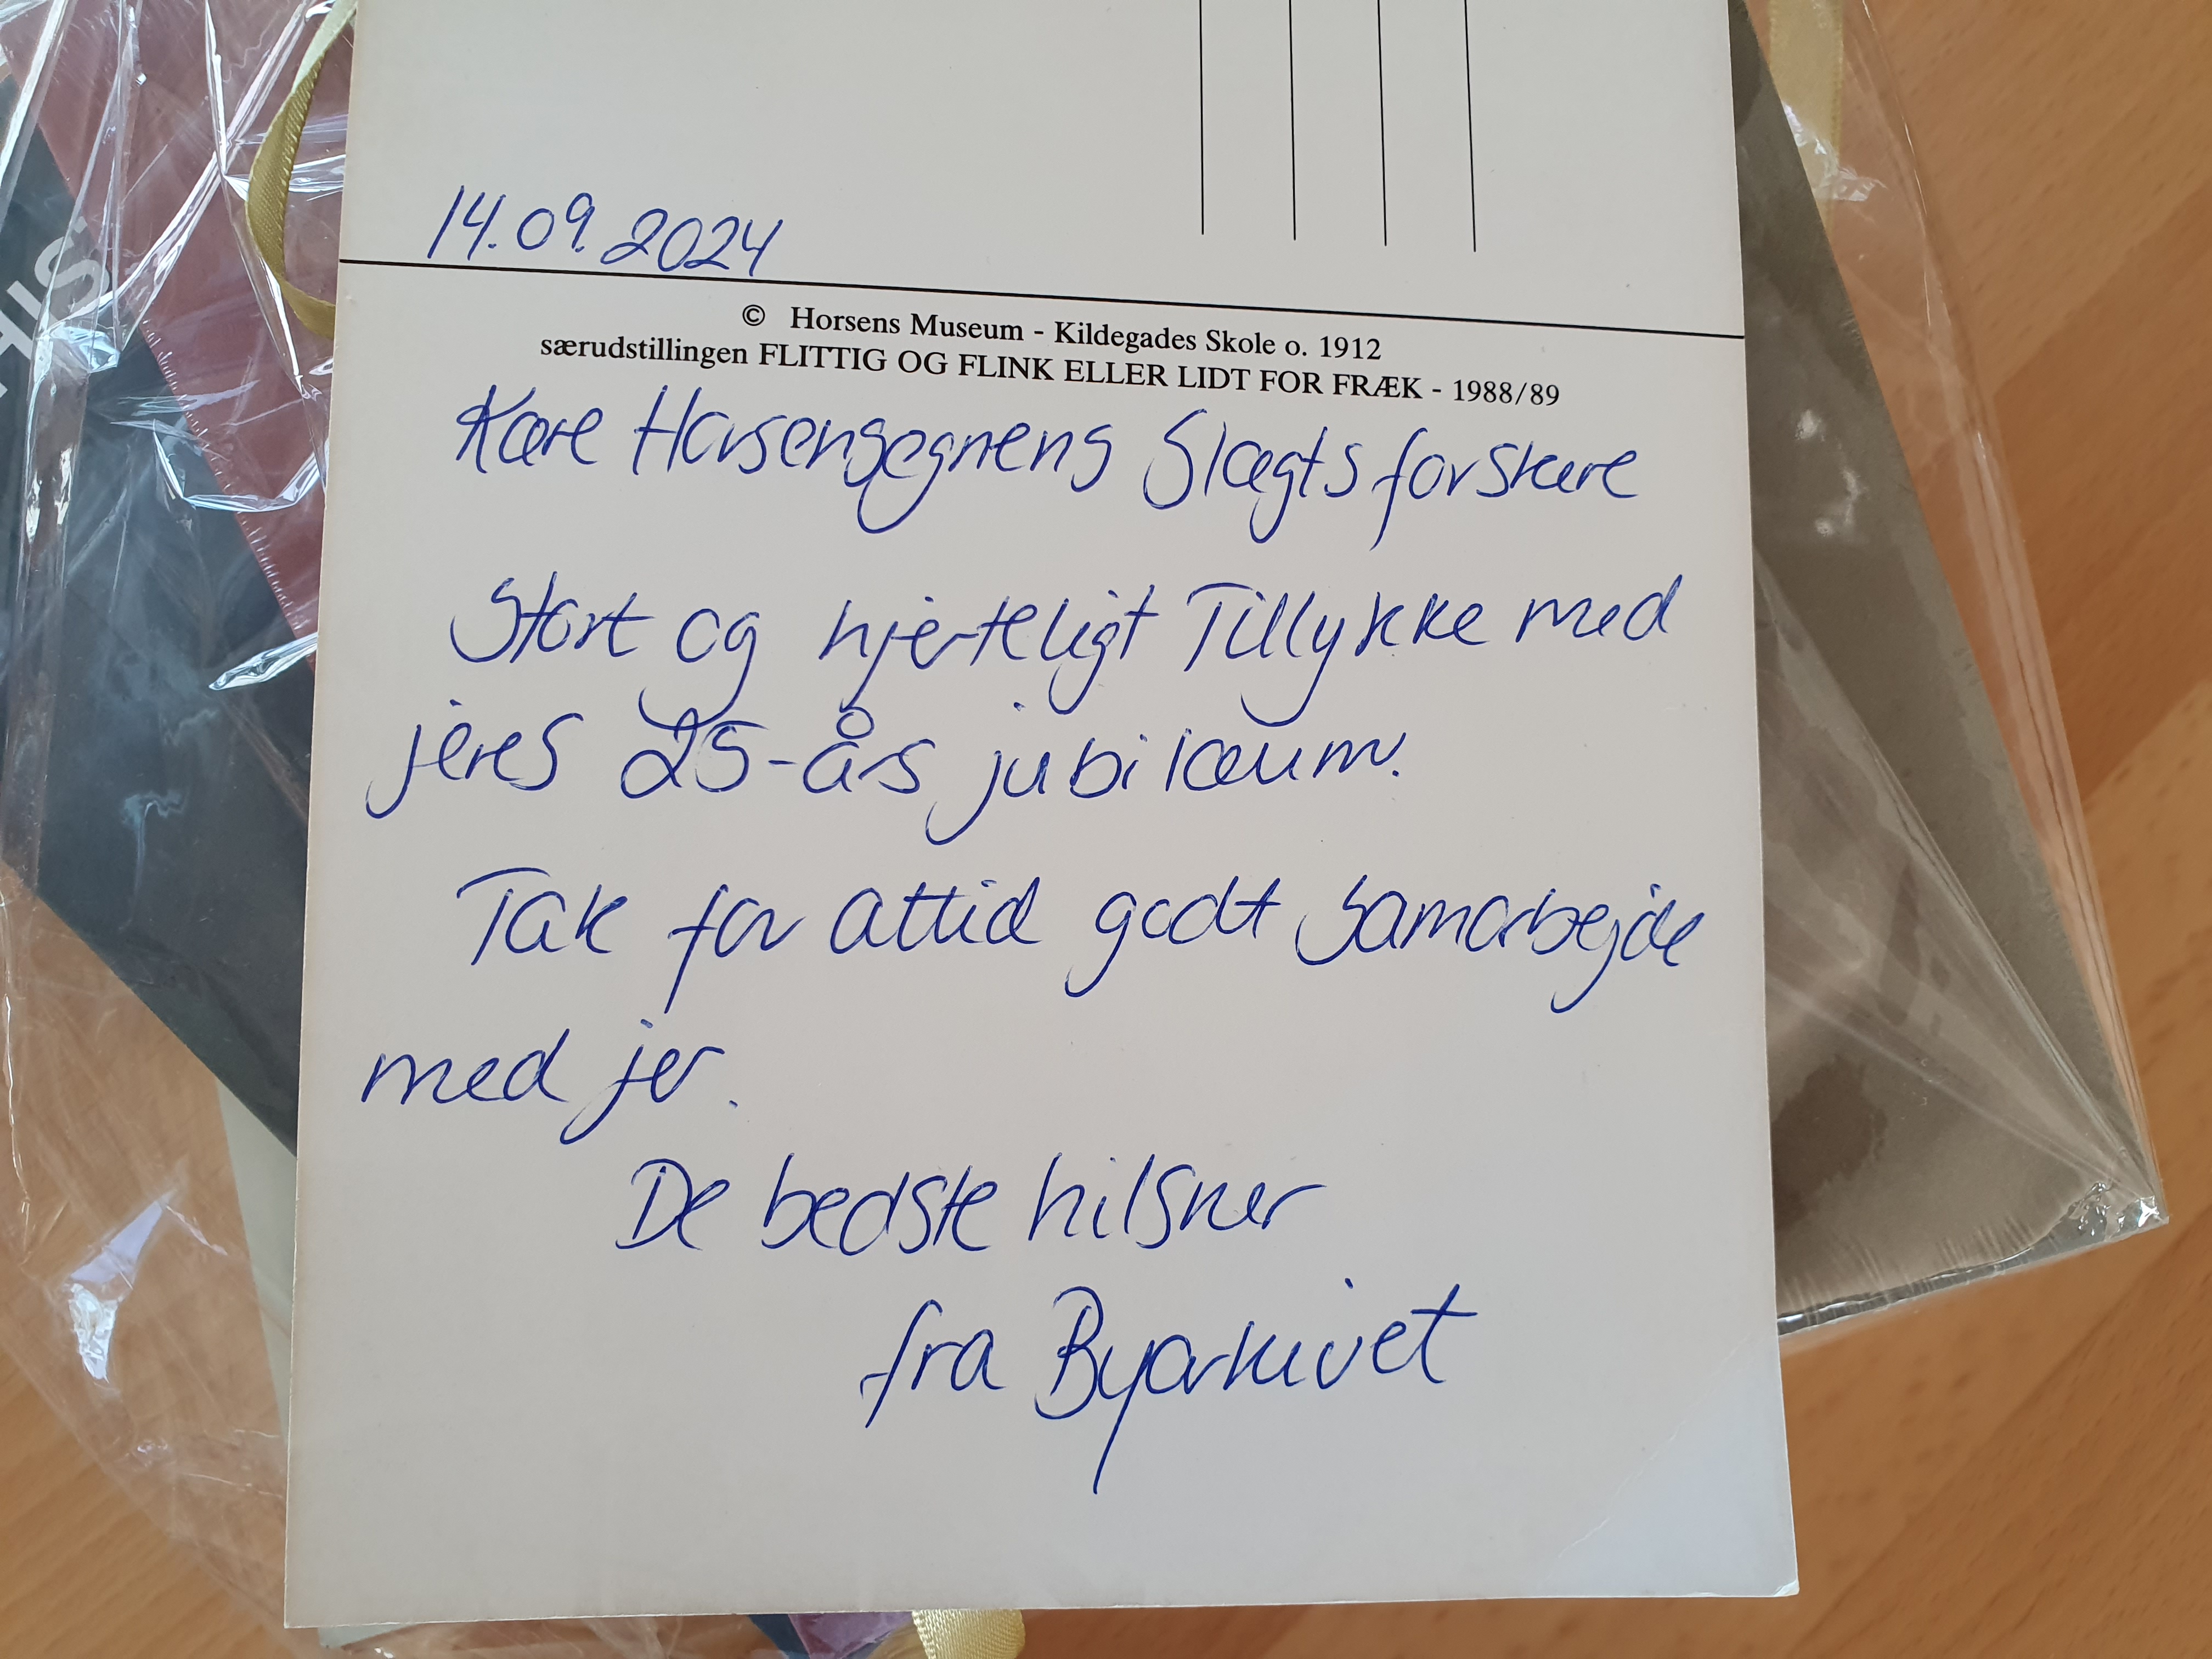 14.09.2024
© Horsens Museum - Kildegades Skole o. 1912
særudstillingen FLITTIG OG FLINK ELLER LIDT FOR FRÆK - 1988/89
Kære Horsensegnens Slægtsforskere
Stort og hjerteligt Tillykke med
jeres 25-års jubilæum.
Tak for altid godt samarbejde
med jer.
De bedste hilsner
fra Byarkivet